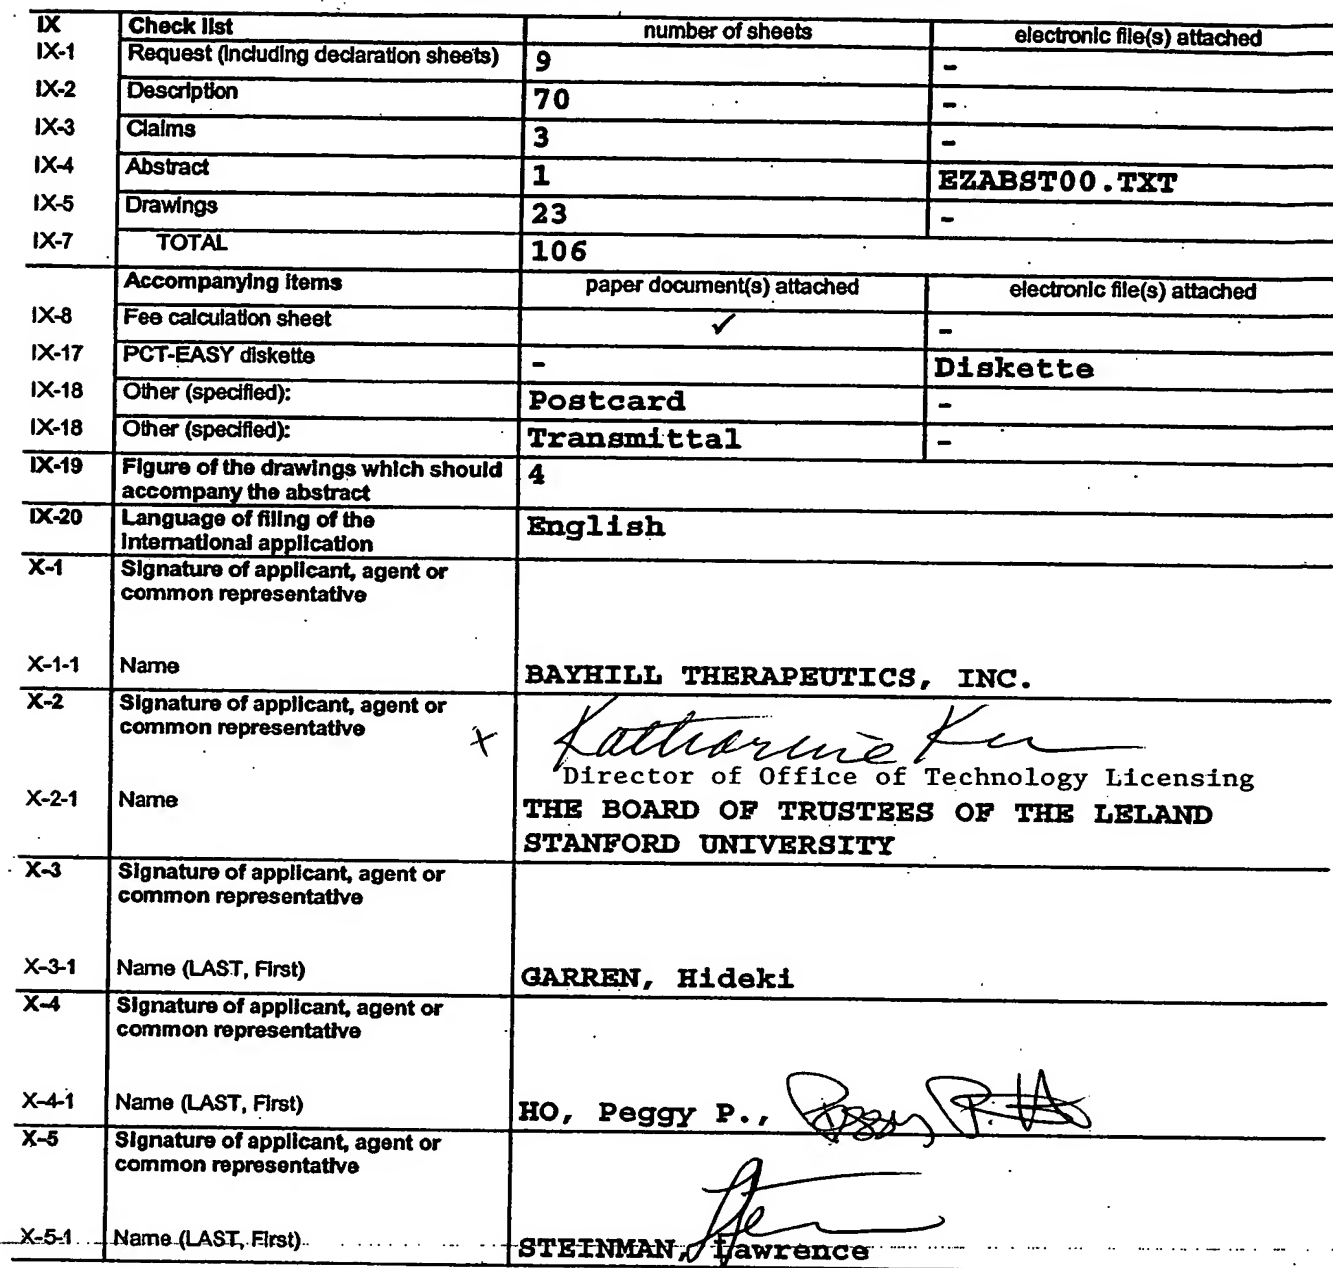 IX Check list number of sheets electronic file(s) attached
IX-1 Request (including declaration sheets) 9 -
IX-2 Description 70 -
IX-3 Claims 3 -
IX-4 Abstract 1 EZABST00.TXT
IX-5 Drawings 23 -
IX-7 TOTAL 106
Accompanying items paper document(s) attached electronic file(s) attached
IX-8 Fee calculation sheet ✓ -
IX-17 PCT-EASY diskette - Diskette
IX-18 Other (specified): Postcard -
IX-18 Other (specified): Transmittal -
IX-19 Figure of the drawings which should 4
accompany the abstract
IX-20 Language of filing of the English
international application
X-1 Signature of applicant, agent or
common representative
X-1-1 Name BAYHILL THERAPEUTICS, INC.
X-2 Signature of applicant, agent or
common representative X Katharine Ku
Director of Office of Technology Licensing
X-2-1 Name THE BOARD OF TRUSTEES OF THE LELAND
STANFORD UNIVERSITY
X-3 Signature of applicant, agent or
common representative
X-3-1 Name (LAST, First) GARREN, Hideki
X-4 Signature of applicant, agent or
common representative
X-4-1 Name (LAST, First) HO, Peggy P.,
X-5 Signature of applicant, agent or
common representative
X-5-1 Name (LAST, First) STEINMAN, Lawrence